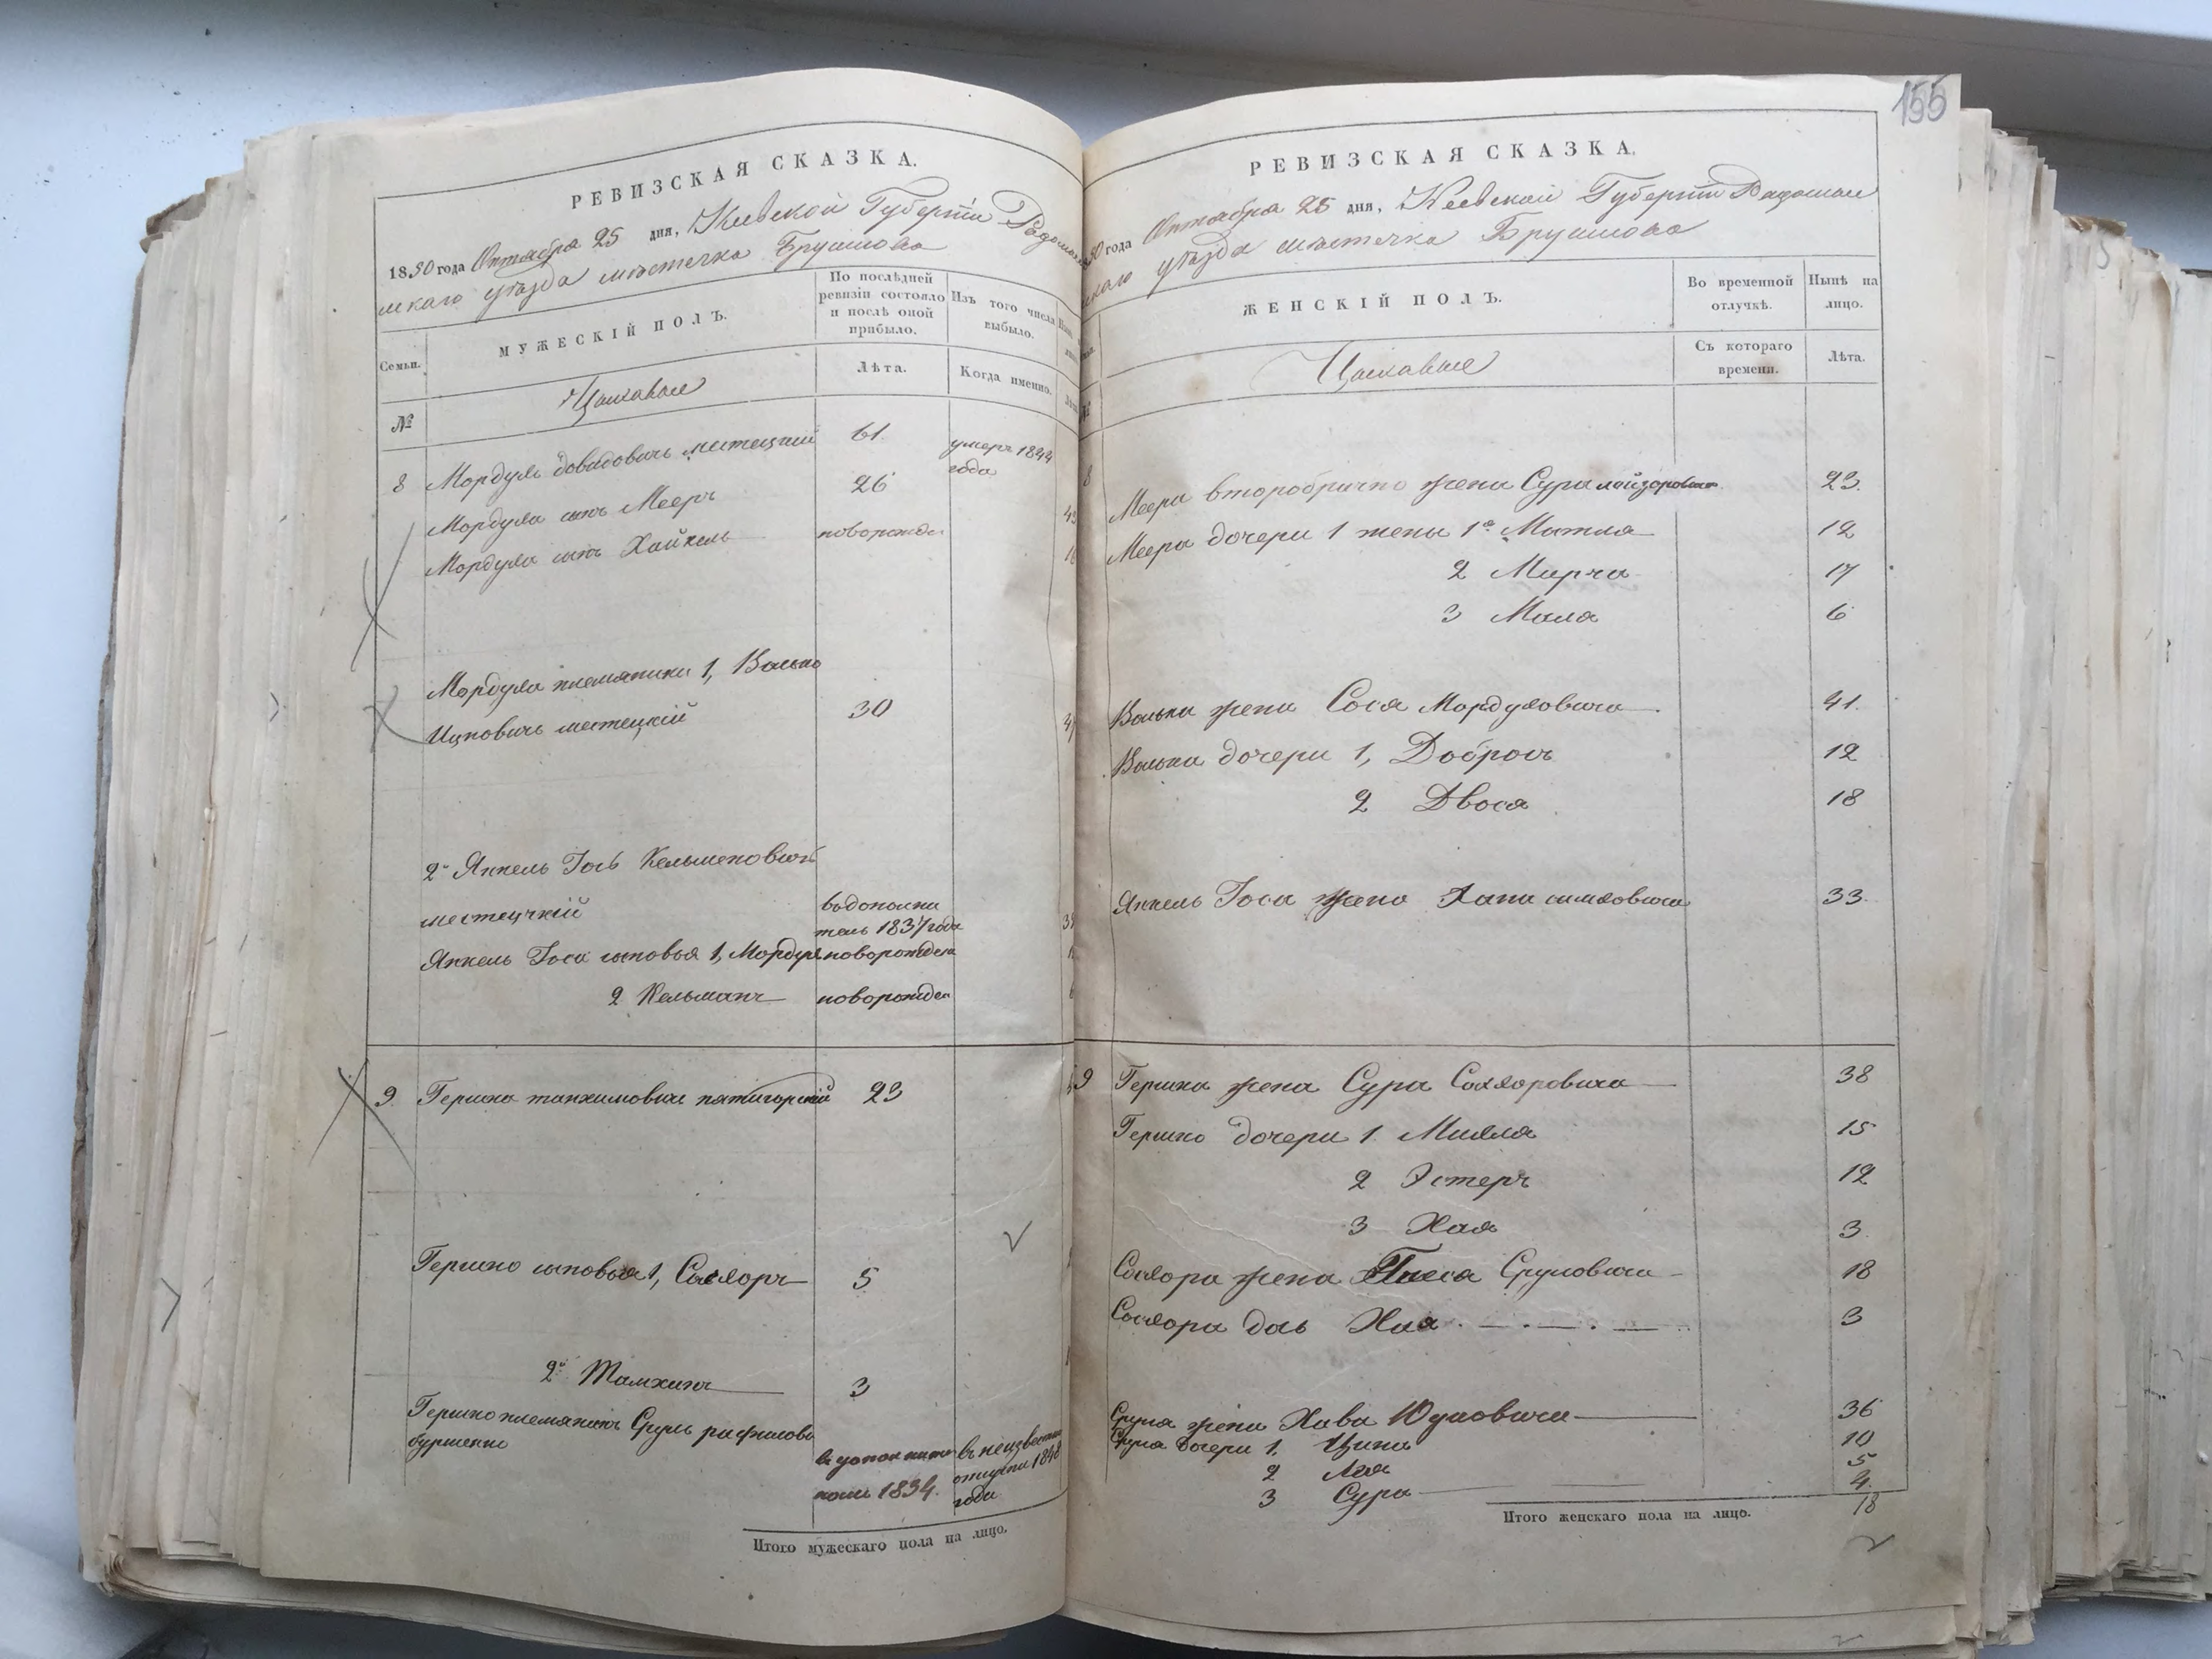 РЕВИЗСКАЯ СКАЗКА.
1850 года Октября 25 дня, Киевской Губернiи Радомы
шлскаго уѣзда мѣстечка Брусилова
Семьи.
МУЖЕСКІЙ ПОЛЪ.
По послѣдней
ревизіи состояло
и послѣ оной
прибыло.
Изъ того числа
выбыло.
Лѣта.
Когда именно.
№
Цеховые
8 Мордуль Довидовичь местецкий 61. умеръ 1844
года
Мордула сынъ Мееръ 26
Мордула сынъ Хайкель новорожде
Мордула племяники 1, Волько
Ицковичь местецкій 30
2й Янкель Іось Кельменовичь
местецчкій вь дополни
тель 1837 года
Янкель Іоса сыновья 1, Мордул новорожден
2 Кельманъ новорожден
9. Гершко танхимовичь пятигорский 23
Гершко сыновья 1, Сахлоръ 5
2й Танхимъ 3
Гершко племяникъ Сруль рафаилов
бурженко
в дополните
1834.
въ неизвестн
отлучки 1848
года
Итого мужескаго пола на лицо.
155
РЕВИЗСКАЯ СКАЗКА.
50 года Октября 25 дня, Кіевской Губерніи Радомы
скаго уѣзда мѣстечка Брусилова
ЖЕНСКІЙ ПОЛЪ.
Во временной
отлучкѣ.
Нынѣ на
лицо.
Съ котораго
времени.
Лѣта.
№
Цеховые
8
Меера второбрачно жена Сура лейзоровна 23.
Меера дочери 1 жены 1я Матля 12
2 Мирча 17
3 Мала 6
Волька жена Сося Мордуховича 41.
Волька дочери 1, Добрось 12
2 Двося 18
Янкель Іоса жена Хана симховича 33.
9 Гершка жена Сура Сахлоровича 38
Гершко дочери 1. Милля 15
2 Эстеръ 12
3 Хая 3.
Сахлора жена Песя Сруловича 18
Сахлора дочь Хая 3
Сруля жена Хава Юдковича 36
Сруля дочери 1. Ципа 10
2 Лея 5
3 Сура 4.
Итого женскаго пола на лицо. 18